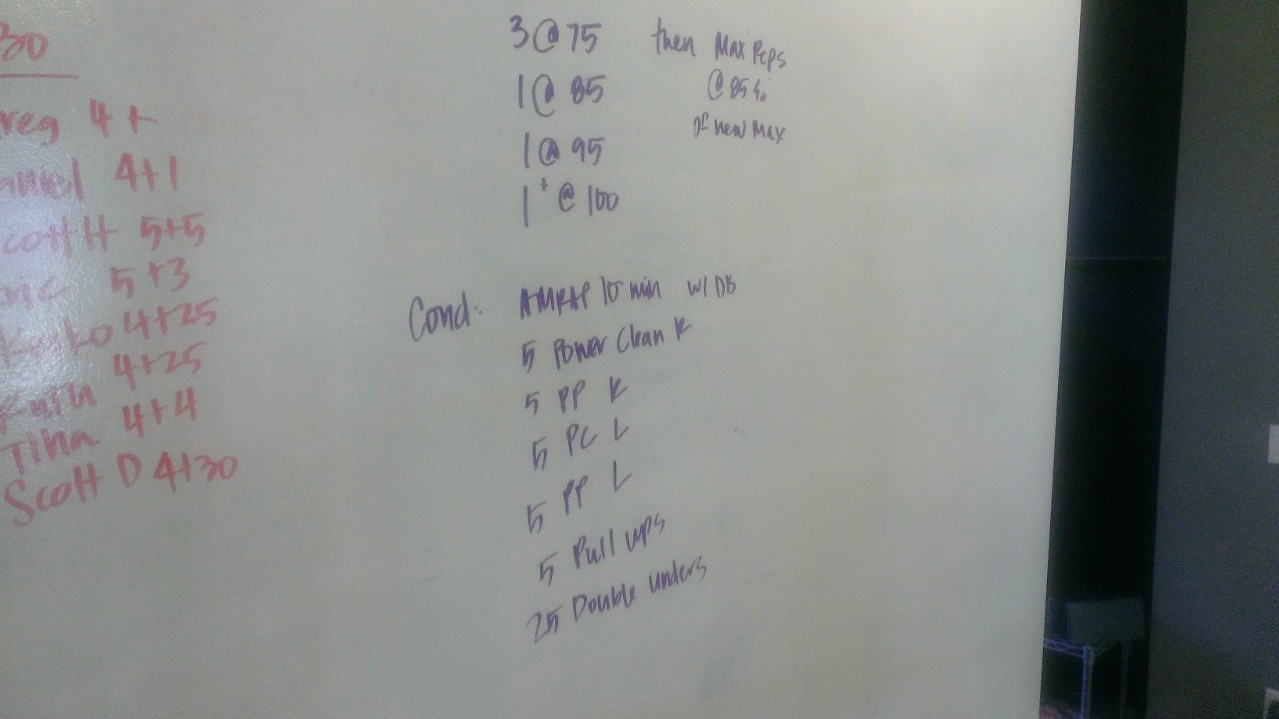 30
reg 4+
aniel 4+1
cott H 5+5
5+3
4+25
4+25
Tina 4+4
Scott D 4+30
3@75 then Max Reps
1@85 @85%
of new Max
1@95
1+@100
Cond: AMRAP 10 min w/ DB
5 Power Clean R
5 PP R
5 PC L
5 PP L
5 Pull ups
25 Double unders